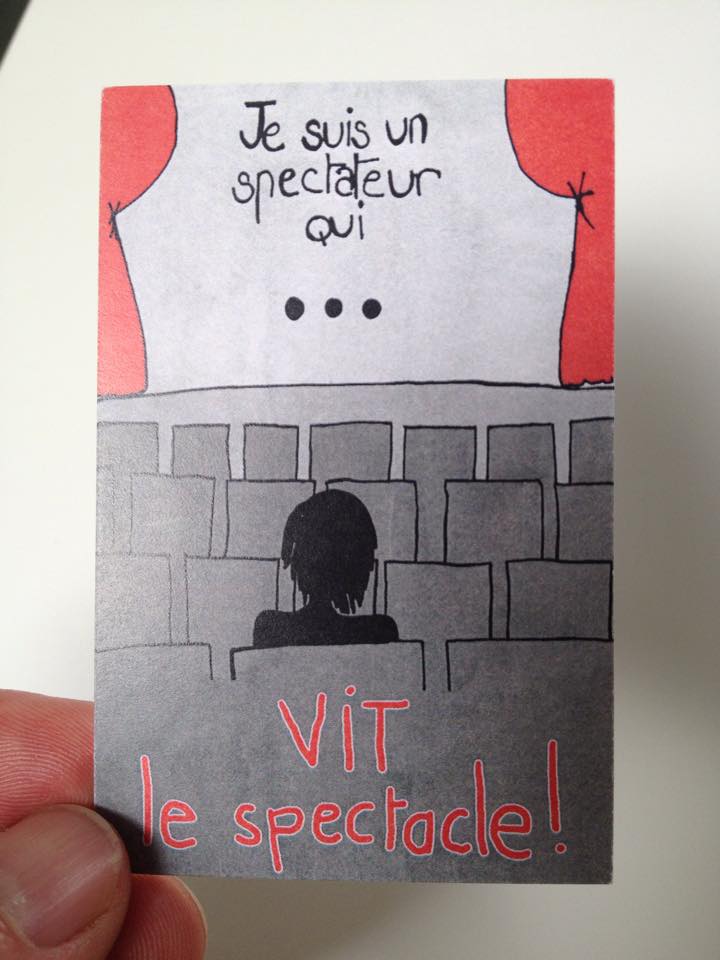 Je suis un
spectateur
qui
...
ViT
le spectacle!